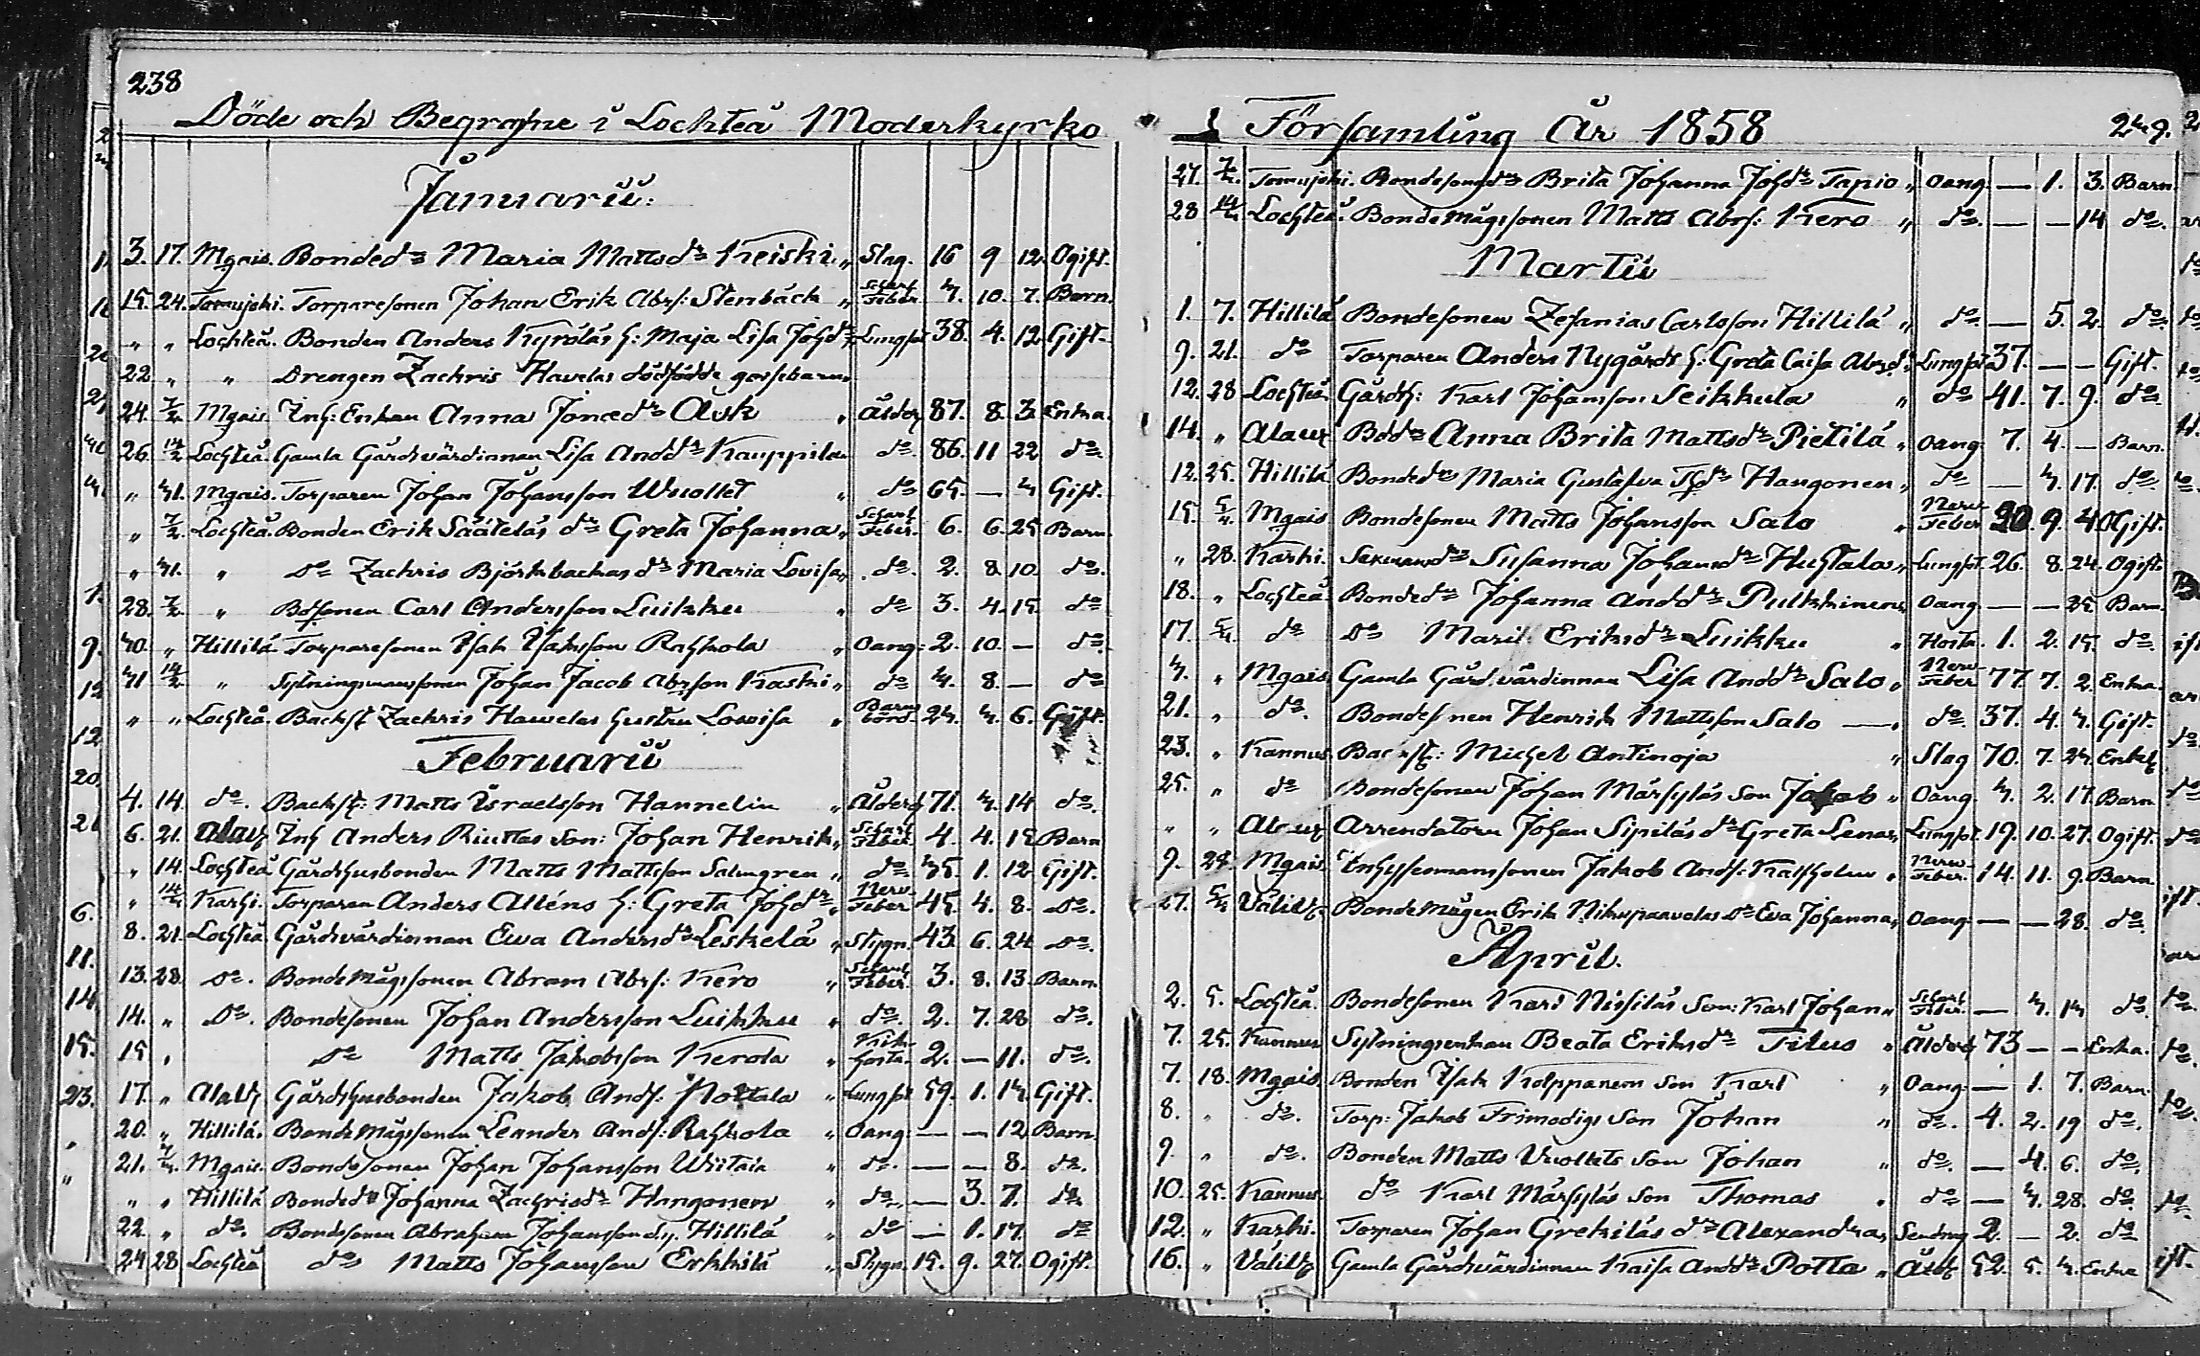 238
Döde och Begrafne i Lochteå Moderkyrko
Januarii.
3. 17. Mgais. Bondedr Maria Mattsdr Keiski " Slag. 16 9 12. Ogift.
15. 24. Tomujoki. Torparesonen Johan Erik Abrs: Stenbäck " Scharl Feber. 4. 10. 7. Barn.
" " Lochteå. Bonden Anders Kyrölas h: Maja Lisa Johdr Lungsot 38. 4. 12. Gift.
22. " " Drengen Zachris Havelas dödfödde gossebarn
24. 7/2 Mgais. Inh: Enkan Anna Jonædr Ask " Ålder 87. 8. 3. Enka.
26. 14/2 Lochteå. Gamla Gårdvärdinnan Lisa Anddr Kauppila do. 86. 11 22 do.
" 31. Mgais. Torparen Johan Johansson Wuollet " do 65. — 4 Gift.
" 7/2. Lochteå Bonden Erik Sääteläs dr Greta Johanna " Scharl Feber. 6. 6. 25 Barn.
" 31. " Do Zachris Björkbackas dr Maria Lovisa " do. 2. 8. 10. do.
28. 7/2. " Bdsonen Carl Andersson Luikku " do 3. 4. 15. do
30. " Hillilä. Torparesonen Isak Isaksson Rahkola " Oang: 2. 10. — do.
31 14/2. " Sytningsmanssonen Johan Jacob Abrson Kaski " do 4. 8. — do
" " Lochteå. Backst Zachris Hawelas hustru Lowisa " Barn börd. 24. 4. 6. Gift.
Februarii
4. 14. do. Backst: Matts Israelsson Hannelin " Ålderd 71. 4. 14 do.
6. 21. Alav Inh Anders Riuttas son: Johan Henrik " Scharl Feber. 4. 4. 15 Barn
" 14. Lochteå Gårdhusbonden Matts Mattsson Salmgren " do 35. 1. 12 Gift.
" 14/3 Karhi. Torparen Anders Alléns h: Greta Johdr " Nerv Feber 45. 4. 8. Do.
8. 21. Lochteå Gårdvärdinnan Ewa Andersdr Leskelä " Stygn. 43. 6. 24 Do.
13. 28. Do. Bondemågssonen Abram Abrs: Kero " Scharl Feber. 3. 8. 13. Barn.
14. " Do. Bondesonen Johan Andersson Luikku " do. 2. 7. 28 do.
15 " Do Matts Jakobsson Kerola " Kik hosta. 2. — 11. do.
17. " Alav Gårdhusbonden Jakob Ands: Pottala " Lungsot 59. 1. 14. Gift.
20. " Hillilä. Bondemågssonen Leander Ands: Rahkola " Oang — — 12. Barn.
21. 7/3. Mgais. Bondesonen Johan Johansson Wiitala " do. — — 8. do.
" " Hillilä Bondedr Johanna Zachrisdr Hangonen " do. — 3. 7. do.
22. " do. Bondesonen Abraham Johansson d.y. Hillilä " do — 1. 17. do
24 28 Lochteå do Matts Johansson Erkkilä " Stygn. 15. 9. 27. Ogift.
Församling År 1858
249.
27. 7/3. Tomujoki. Bondesonsdr Brita Johanna Johdr Tapio " Oang. — 1. 3. Barn.
28 14/3 Lochteå. Bondemågssonen Matts Abrs: Kero " do. — — 14 do.
Martii
1. 7. Hillilä Bondesonen Zefanias Carlsson Hillilä " do. — 5. 2. do.
9. 21. do Torparen Anders Nygårds h: Greta Caisa Abrsd: Lungsot 37. — — Gift.
12. 28 Lochteå. Gårdh: Karl Johansson Seikkula " do 41. 7. 9. do.
14. " Alav Bddr Anna Brita Mattsdr Pietilä " Oang 7. 4. — Barn.
12. 25. Hillilä Bondedr Maria Gustafva Thdr Hangonen " do — 4. 17. do.
15. 5/4. Mgais Bondesonen Matts Johansson Salo " Nerv Feber 20. 9. 4. Ogift.
" 28. Karhi. Susanna Johansdr Huhtala " Lungsot. 26. 8. 24. Ogift.
18. " Lochteå. Bondedr Johanna Anddr Pulkkinen " Oang — — 25. Barn.
17. 5/4. do Do Maria Eriksdr Luikku " Hosta. 1. 2. 15. do.
4. " Mgais Gamla Gårdvärdinnan Lisa Anddr Salo " Nerv Feber 77. 7. 2. Enka.
21. " do. Bondesonen Henrik Mattsson Salo — " do. 37. 4. 4. Gift.
23. " Kannus Backst: Michel Antinoja " Slag 70. 7. 24. Enkl
25. " do Bondesonen Johan Märsyläs son Jakob " Oang. 4. 2. 17. Barn
" " Alav Arrendatorn Johan Sipiläs dr Greta Lena " Lungsot. 19. 10. 27. Ogift.
9. 28. Mgais Inhysesmanssonen Jakob Ands: " Nerv Feber. 14. 11. 9. Barn.
27. 5/4 Välivk Bondemågen Erik Nikupaavolas Dr Eva Johanna " Oang — — 28. do.
April.
2. 5. Lochteå. Bondesonen Karl Nissiläs Son: Karl Johan " Scharl Feber. — 4. 14 do.
7. 25. Kannus Sytningsenkan Beata Eriksdr Titus " Ålderd 73 — — Enka.
7. 18. Mgais. Bonden Isak Kolppanens son Karl " Oang — 1. 7. Barn.
8. " do. Torp: Jakob Frimodigs Son Johan " do. 4. 2. 19 do.
9 " do. Bonden Matts Vuollets Son Johan " do. — 4. 6. do.
10. 25. Kannus. do Karl Märsyläs Son Thomas " do — 4. 28. do.
12. " Karhi. Torparen Johan Grekiläs dr Alexandra " 2. — 2. do
16. " Välivk Gamla Gårdvärdinnan Kaisa Anddr Potta " Åld 52. 5. 4. Enka